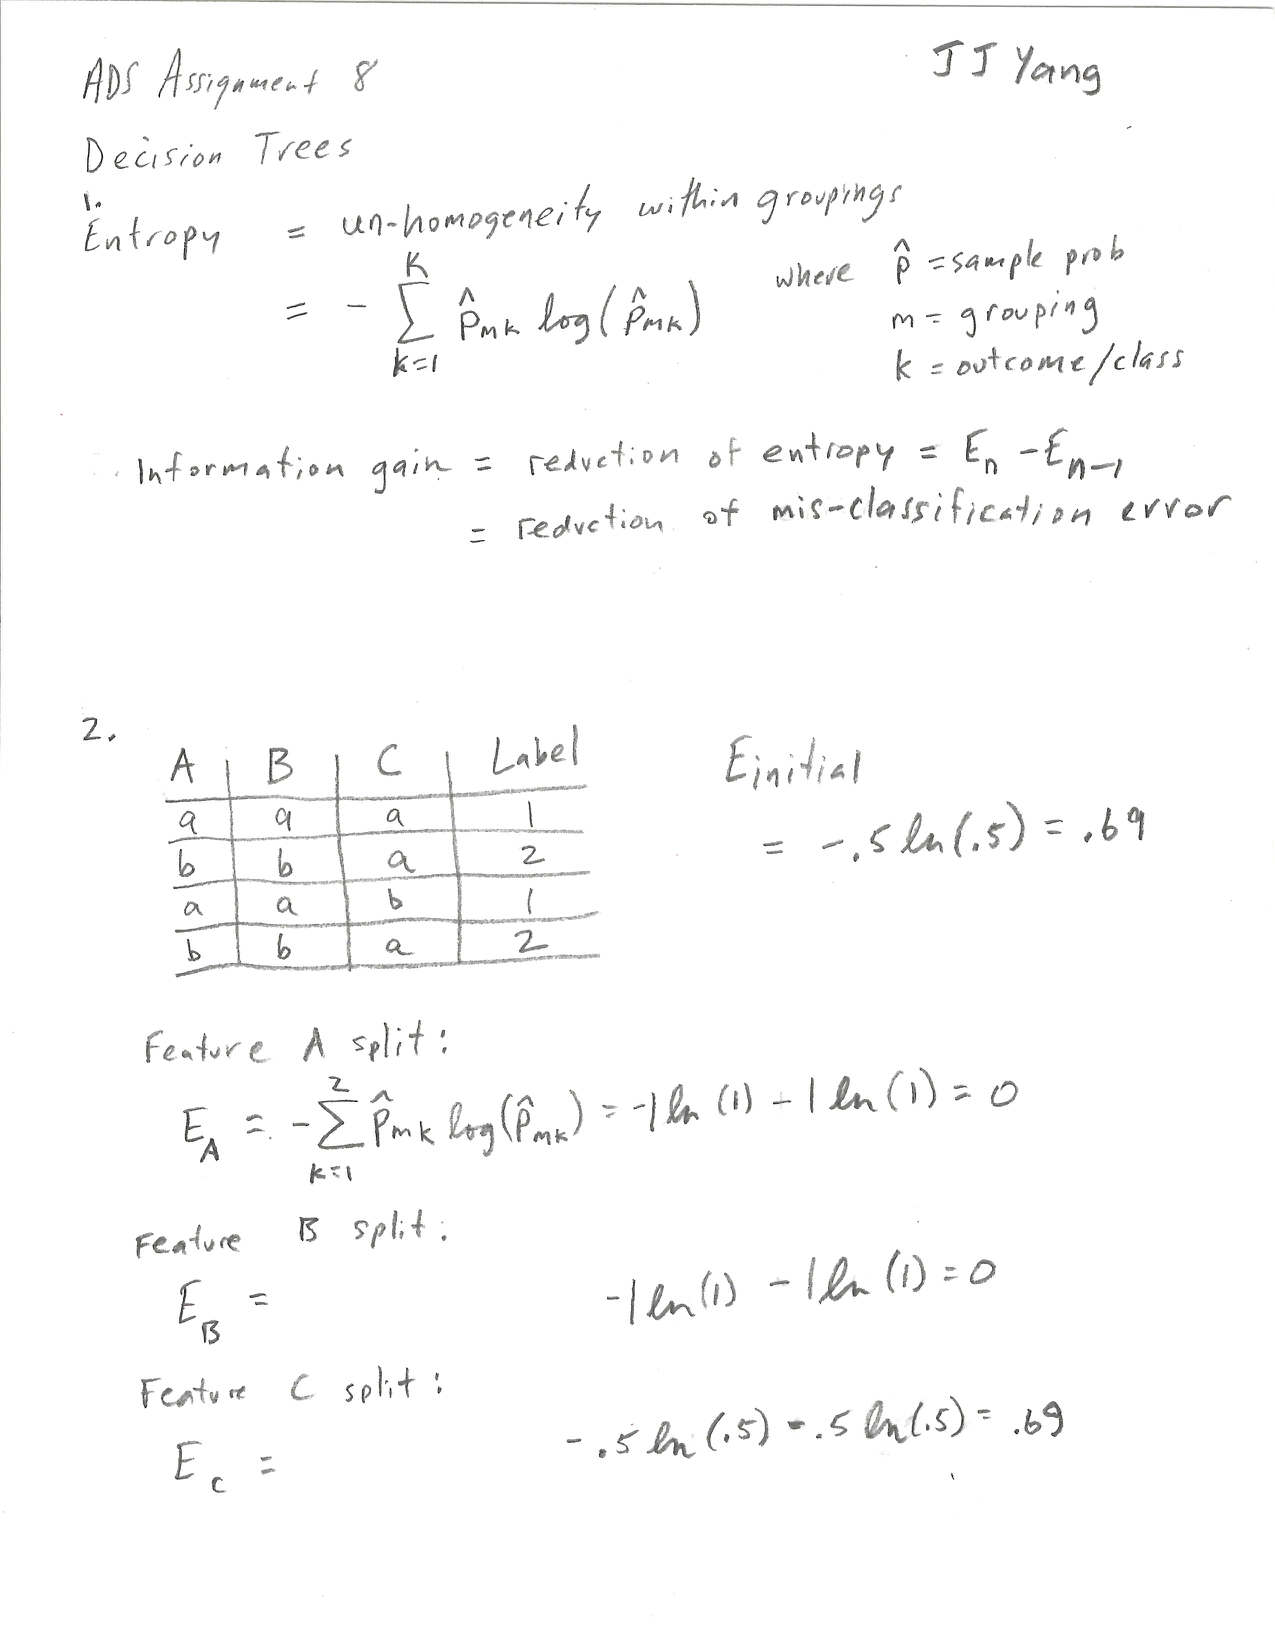 ADS Assignment 8
JJ Yang
Decision Trees
1.
Entropy = un-homogeneity within groupings
= - K∑k=1 p̂mk log(p̂mk) where p̂ = sample prob
m = grouping
k = outcome/class
Information gain = reduction of entropy = En - En-1
= reduction of mis-classification error
2.
A | B | C | Label
a | a | a | 1
b | b | a | 2
a | a | b | 1
b | b | a | 2
Einitial
= -.5 ln(.5) = .69
Feature A split:
EA = - 2∑k=1 p̂mk log(p̂mk) = -1 ln (1) - 1 ln (1) = 0
Feature B split:
EB = -1 ln(1) - 1 ln (1) = 0
Feature C split:
Ec = -.5 ln (.5) - .5 ln(.5) = .69